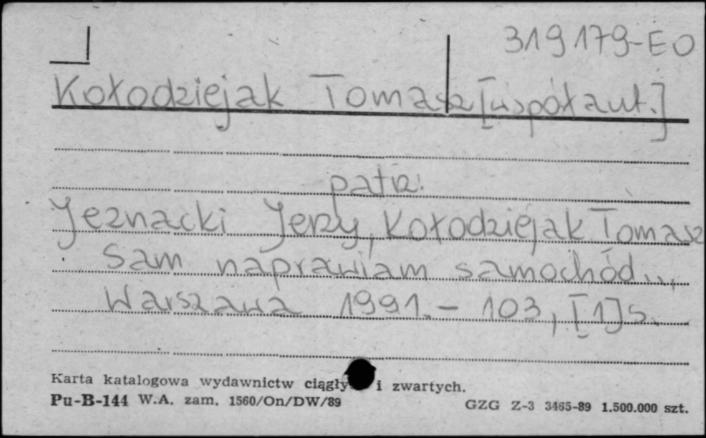 319179-EO
Kołodziejak Tomasz [współaut.]
patrz:
Jeznacki Jerzy, Kołodziejak Tomasz
Sam naprawiam samochód...,
Warszawa 1991.- 103, [1]s.
Karta katalogowa wydawnictw ciągły i zwartych.
Pu-B-144 W.A. zam. 1560/On/DW/89
GZG Z-3 3465-89 1.500.000 szt.